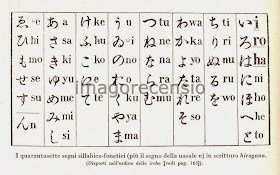 ゑ e あ a け ke う u つ tu わ wa ち ti い i
ひ hi さ sa ふ hu ゐ i ね ne か ka り ri ろ ro
も mo き ki こ ko の no な na よ yo ぬ nu は ha
せ se ゆ yu え e お o ら ra た ta る ru に ni
す su め me て te く ku む mu れ re を o ほ ho
ん n み mi や ya そ so へ he
し si ま ma と to
imagorecensio
I quarantasette segni sillabico-fonetici (più il segno della nasale n) in scrittura hiragana.
(Disposti nell'ordine dello iroha [vedi pag. 163]).